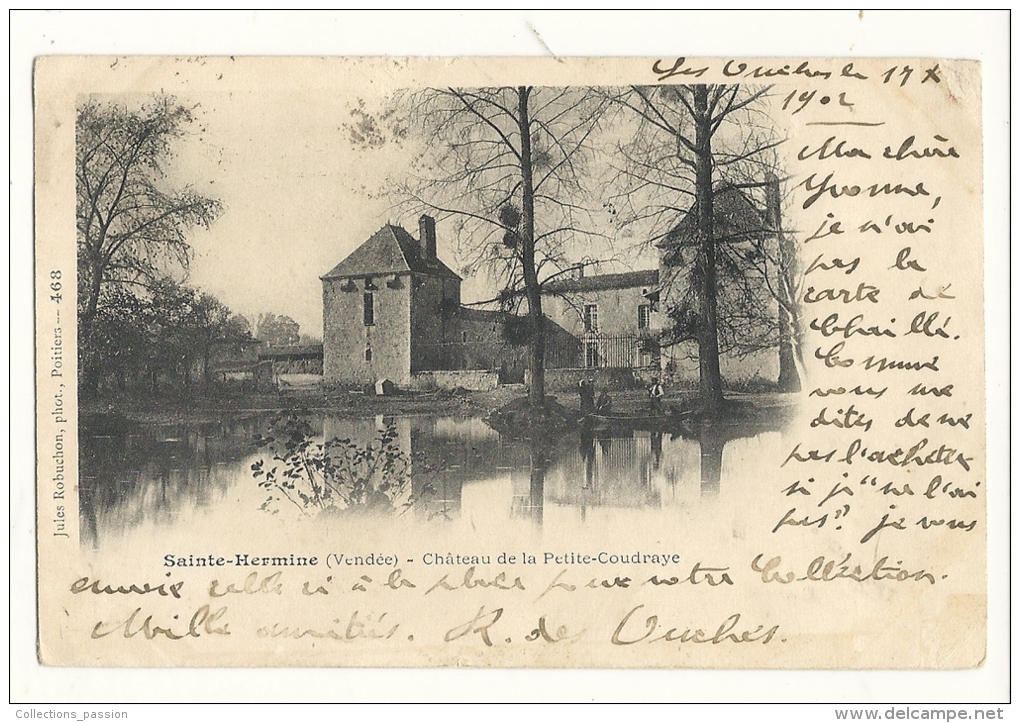 Les Ouches le 17 X
1902
Ma chère
Yvonne,
je n'ai
pas la
carte de
Chaillé.
Comme
vous me
dites de ne
pas l'acheter
si j" ne l'ai
pas? je vous
envoie celle ci à la place pour votre Collection.
Mille amitiés. R. des Ouches.
Sainte-Hermine (Vendée) - Château de la Petite-Coudraye
Jules Robuchon, phot., Poitiers — 468
Collections_passion
http://www.delcampe.net